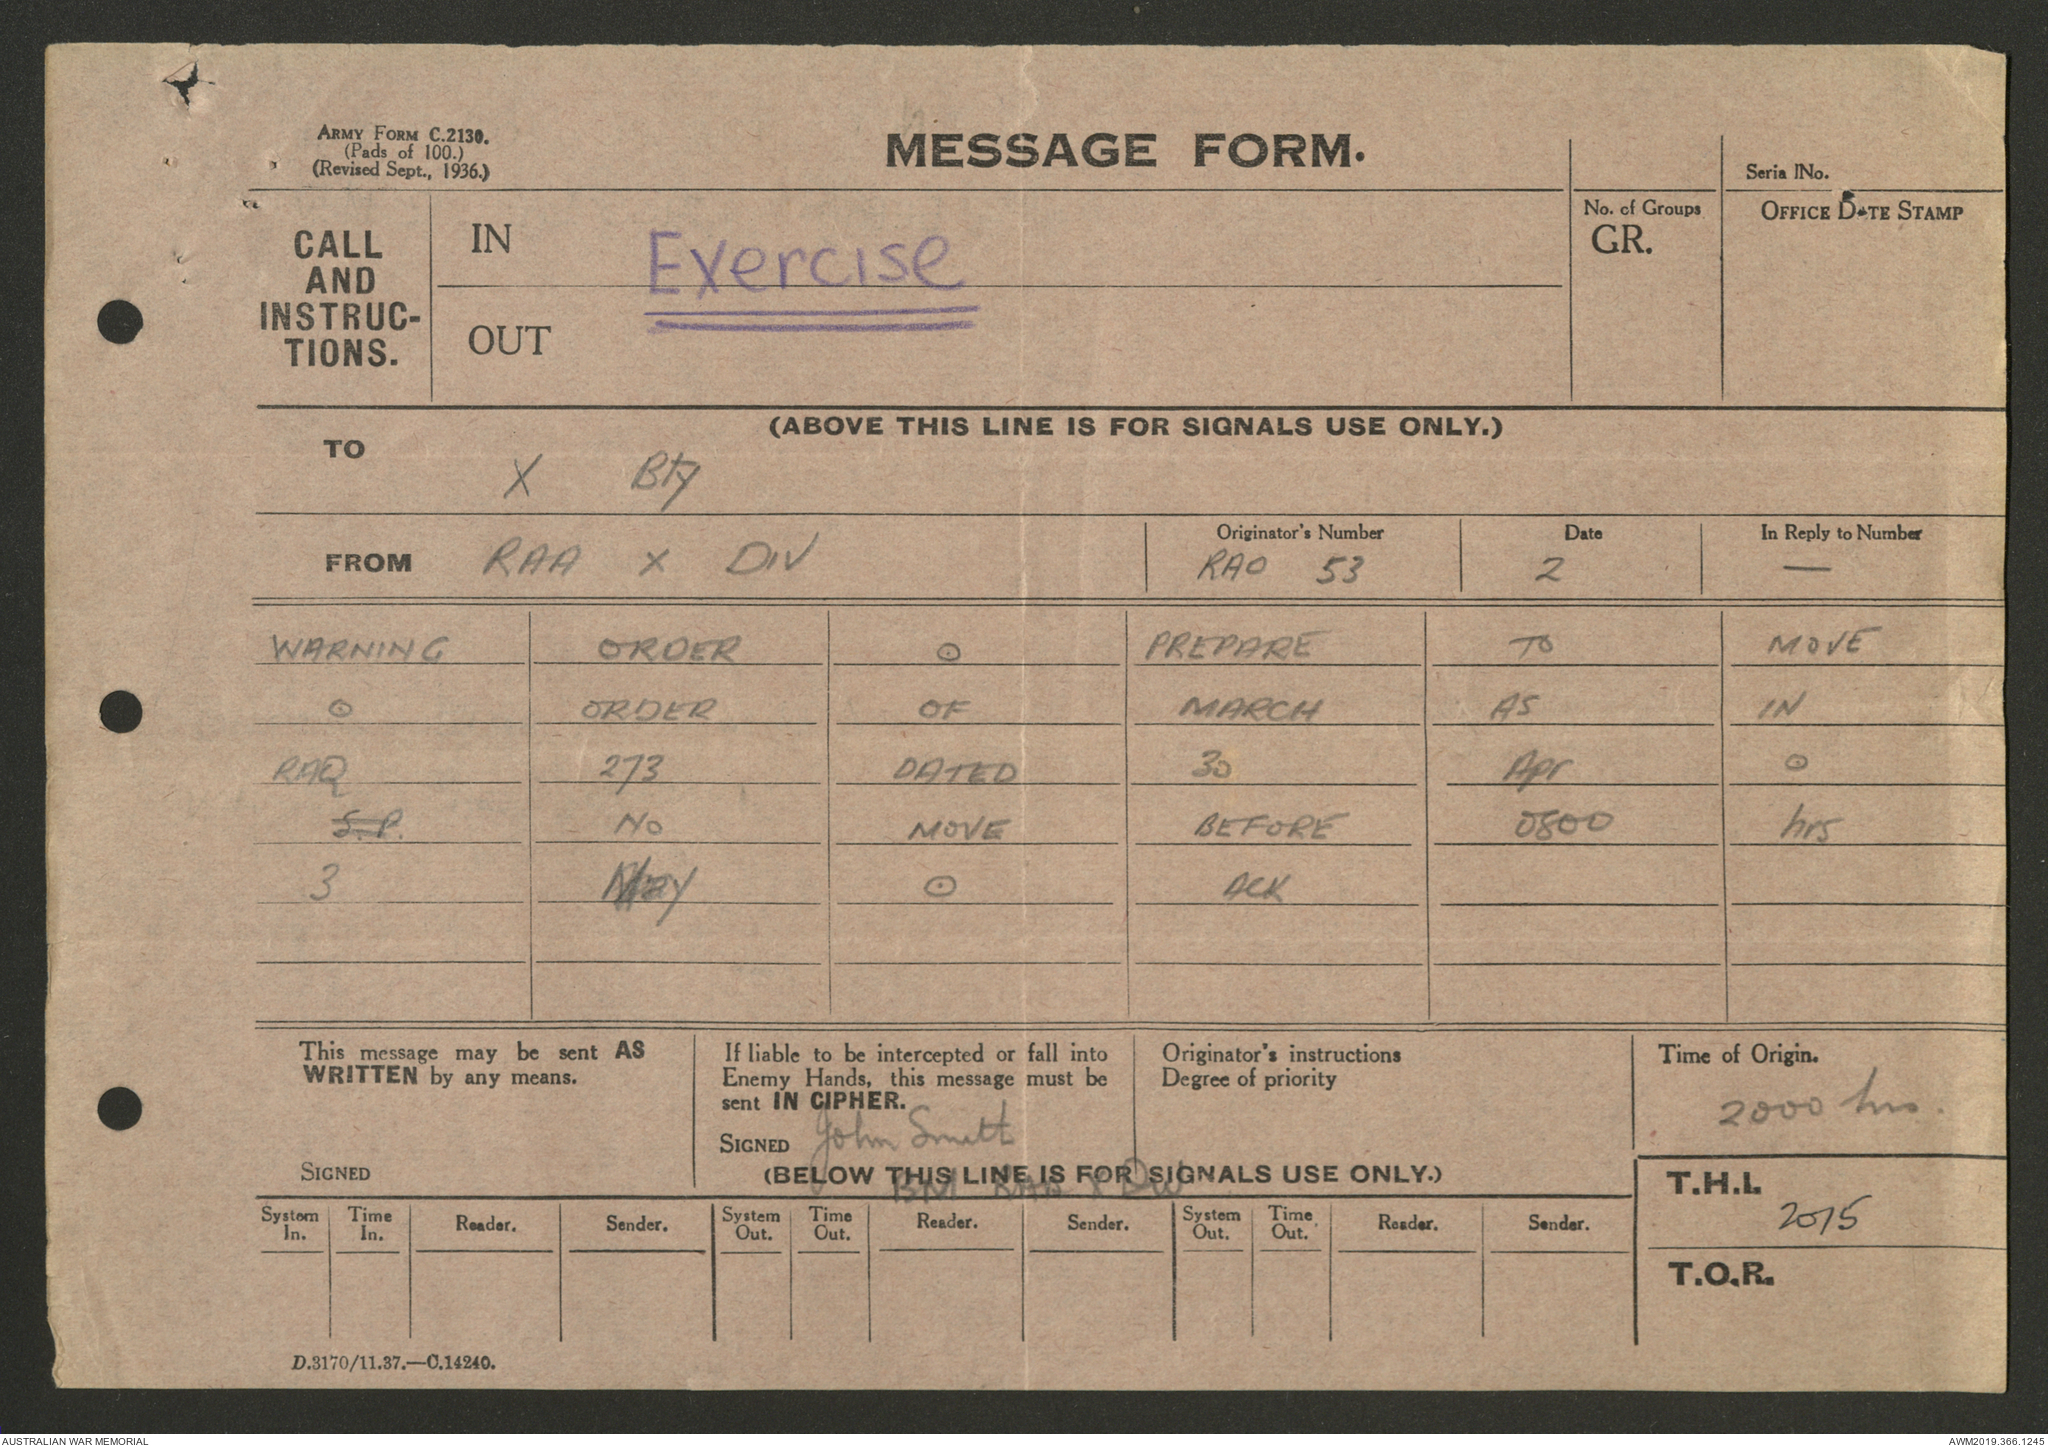 ARMY FORM C.2130.
(Pads of 100.)
(Revised Sept., 1936.)
MESSAGE FORM.
Seria lNo.
CALL AND INSTRUC- TIONS.
IN
Exercise
OUT
No. of Groups
GR.
OFFICE DATE STAMP
(ABOVE THIS LINE IS FOR SIGNALS USE ONLY.)
TO X Bty
FROM RAA X DIV
Originator's Number RAO 53
Date 2
In Reply to Number —
WARNING ORDER ⊙ PREPARE TO MOVE
⊙ ORDER OF MARCH AS IN
RAQ 273 DATED 30 Apr ⊙
S.P. NO MOVE BEFORE 0800 hrs
3 May ⊙ ACK
This message may be sent AS
WRITTEN by any means.
SIGNED
If liable to be intercepted or fall into
Enemy Hands, this message must be
sent IN CIPHER.
SIGNED John Smith
BM RAA X Div
Originator's instructions
Degree of priority
Time of Origin.
2000 hrs.
(BELOW THIS LINE IS FOR SIGNALS USE ONLY.)
T.H.I.
2015
T.O.R.
System In. Time In. Reader. Sender. System Out. Time Out. Reader. Sender. System Out. Time Out. Reader. Sender.
D.3170/11.37.—C.14240.
AUSTRALIAN WAR MEMORIAL
AWM2019.366.1245